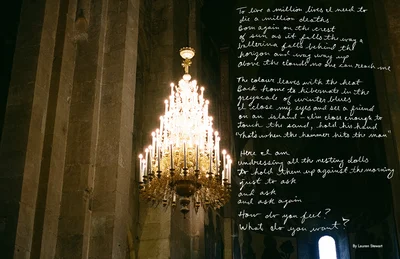 To live a million lives I need to
die a million deaths
Born again on the crest
of sun as it falls the way a
ballerina falls behind the
horizon and way way up
above the clouds no one can reach me
The colour leaves with the heat
Back home to hibernate in the
greyscale of winter blues
I close my eyes and see a friend
on an island - I'm close enough to
touch the sand, hold his hand
"that's when the hammer hits the man"
Here I am
undressing all the nesting dolls
to hold them up against the morning
just to ask
and ask
and ask again
How do you feel?
What do you want?
By Lauren Stewart